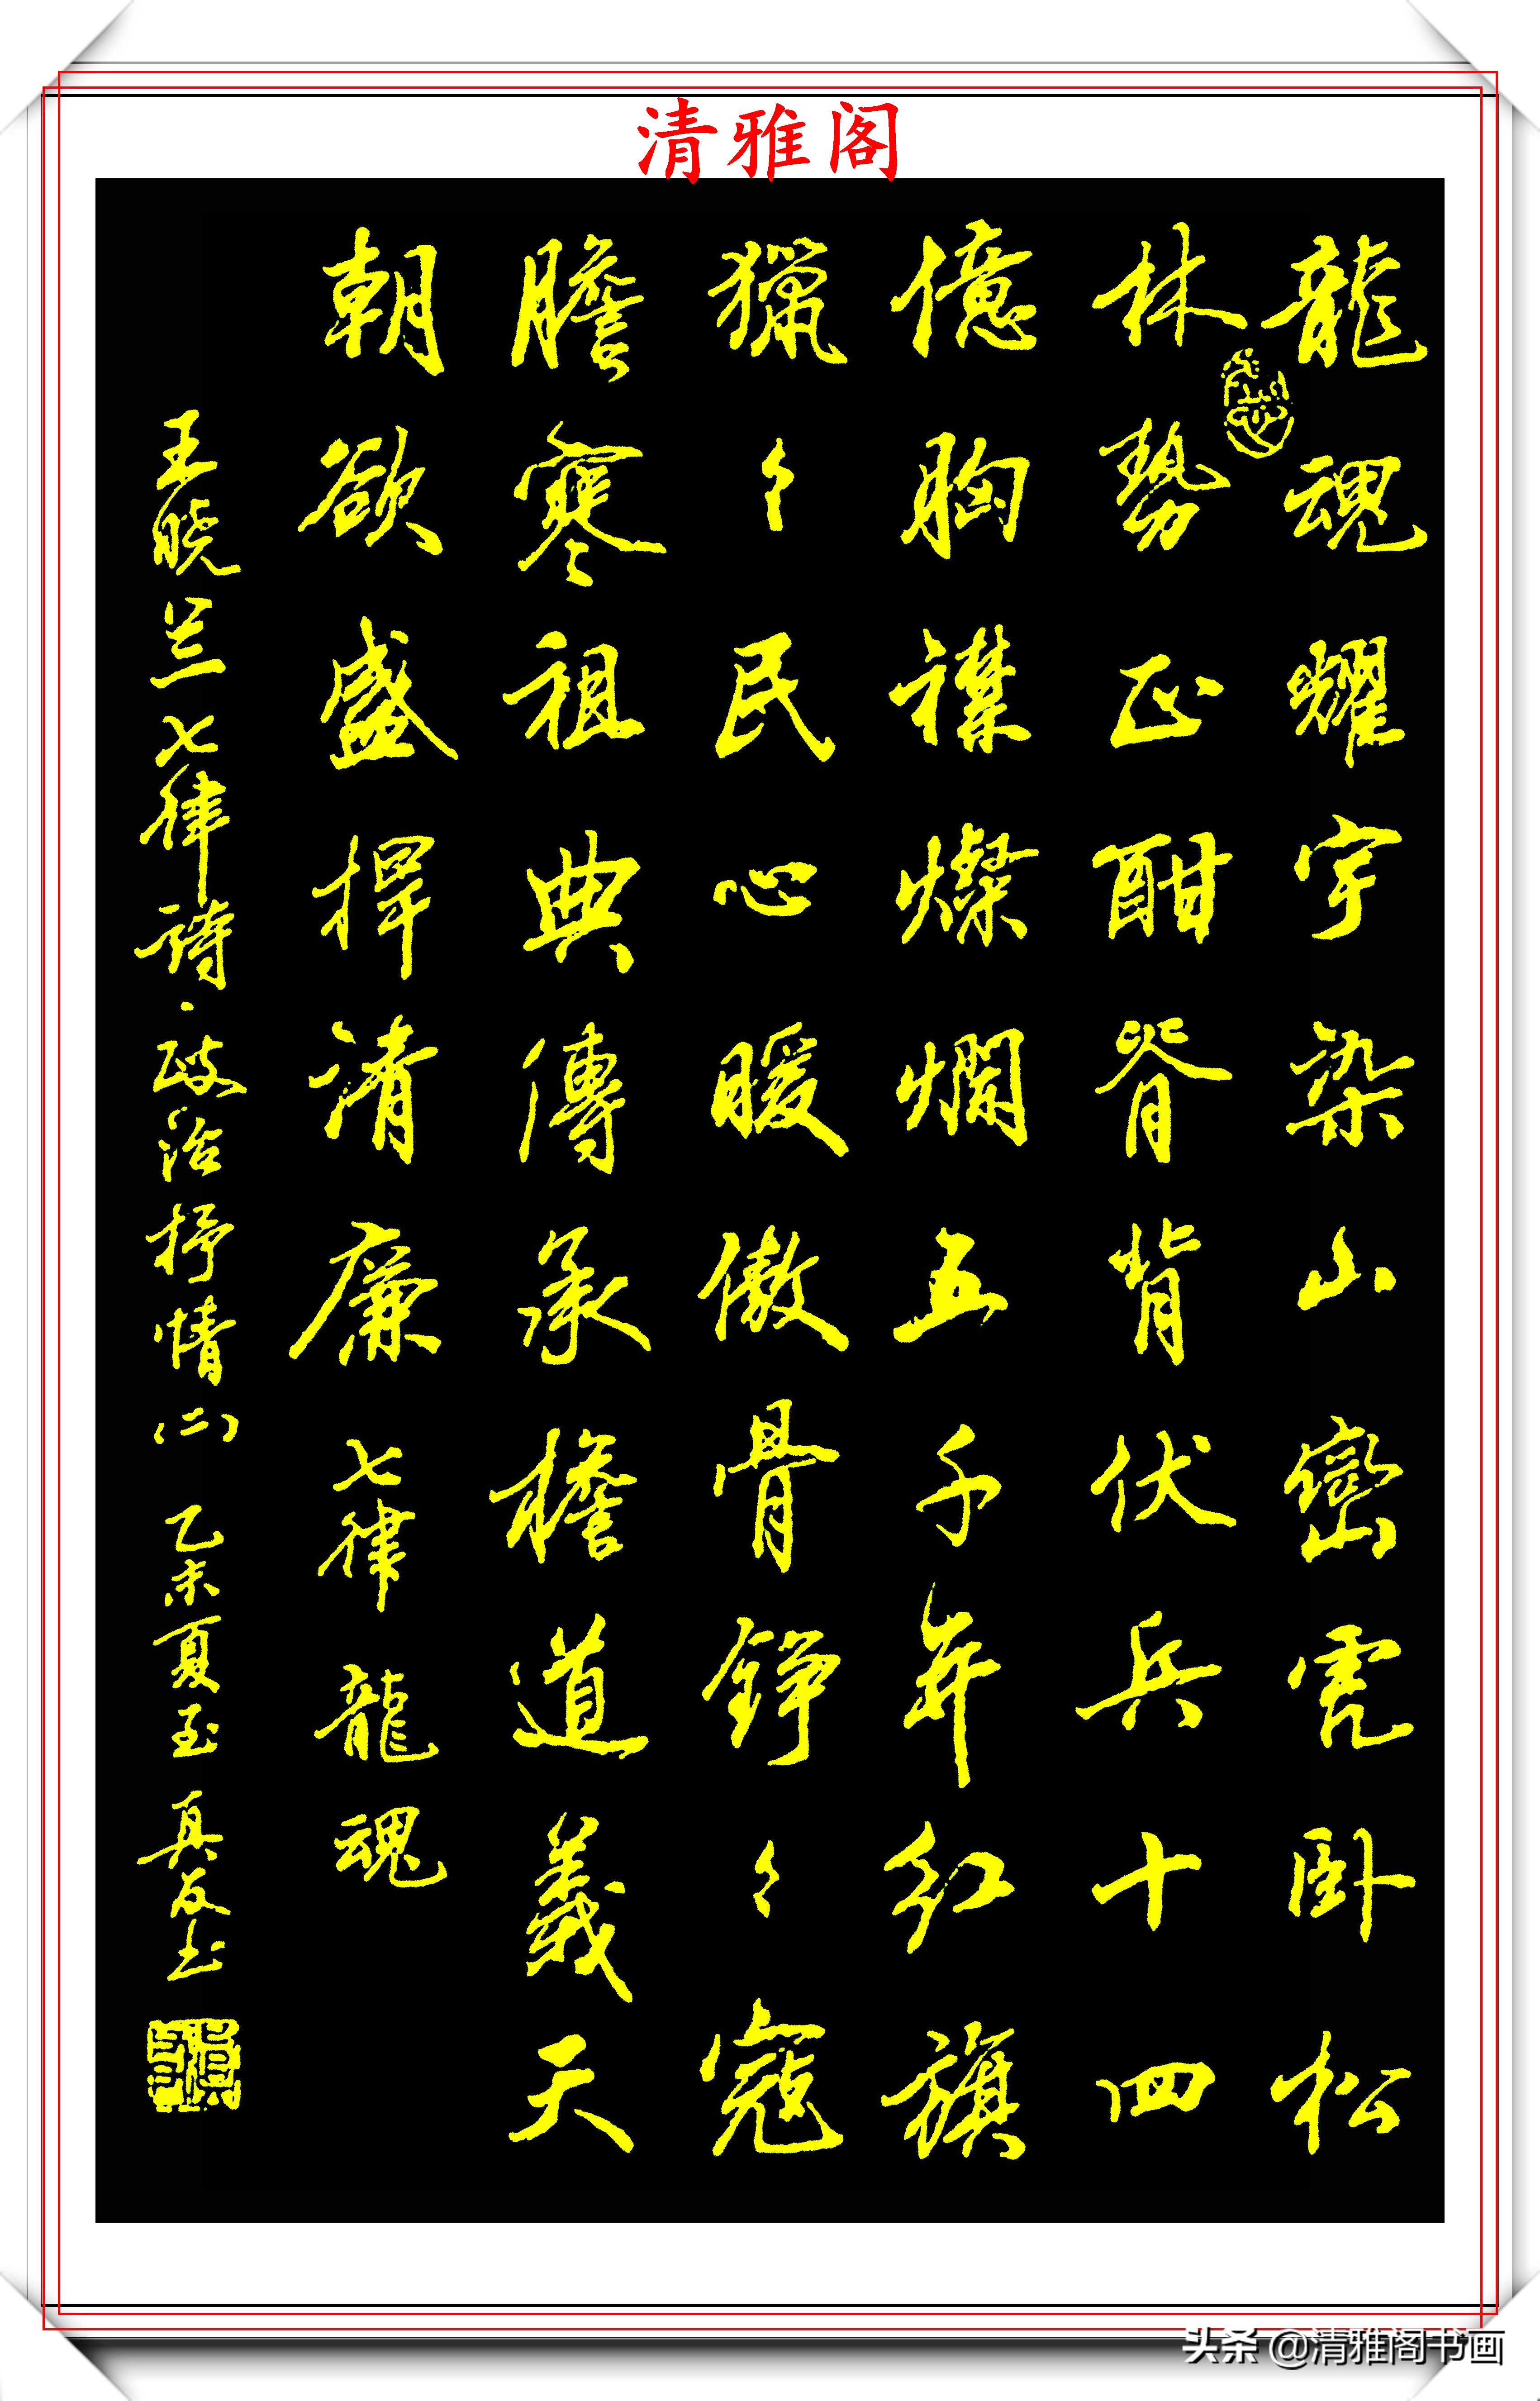 清雅阁
龍魂耀宇染山巒虎卧松
林勢正酣脊背伏兵十四
億胸襟燦爛五千年红旗
獵〻民心暖傲骨錚〻寇
膽寒祖典傳承擔道義天
朝欲盛捍清廉七律龍魂
王晓兰七律詩·政治抒情(二)乙未夏至真友书
头条 @清雅阁书画